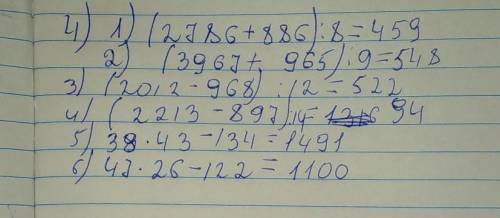 4) 1) (2786+886):8=459
2) (3967+ 965):9=548
3) (2012-968) :2=522
4) (2213-897):14= 94
5) 38·43-134=1491
6) 47·26-122=1100